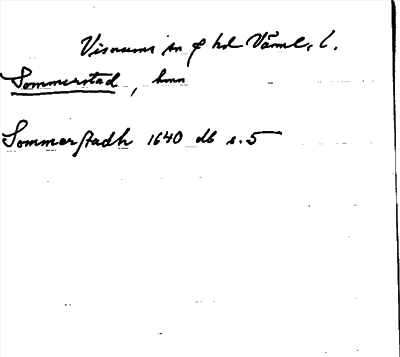 Visnums sn & hd Värml. l.
Sommerstad, hmn
Sommerstadh 1640 db s. 5